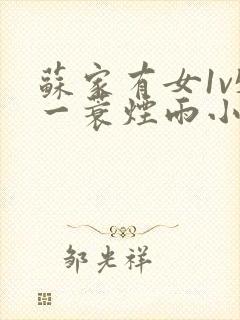 蘇家有女1v
一蓑煙雨小
邹光祥